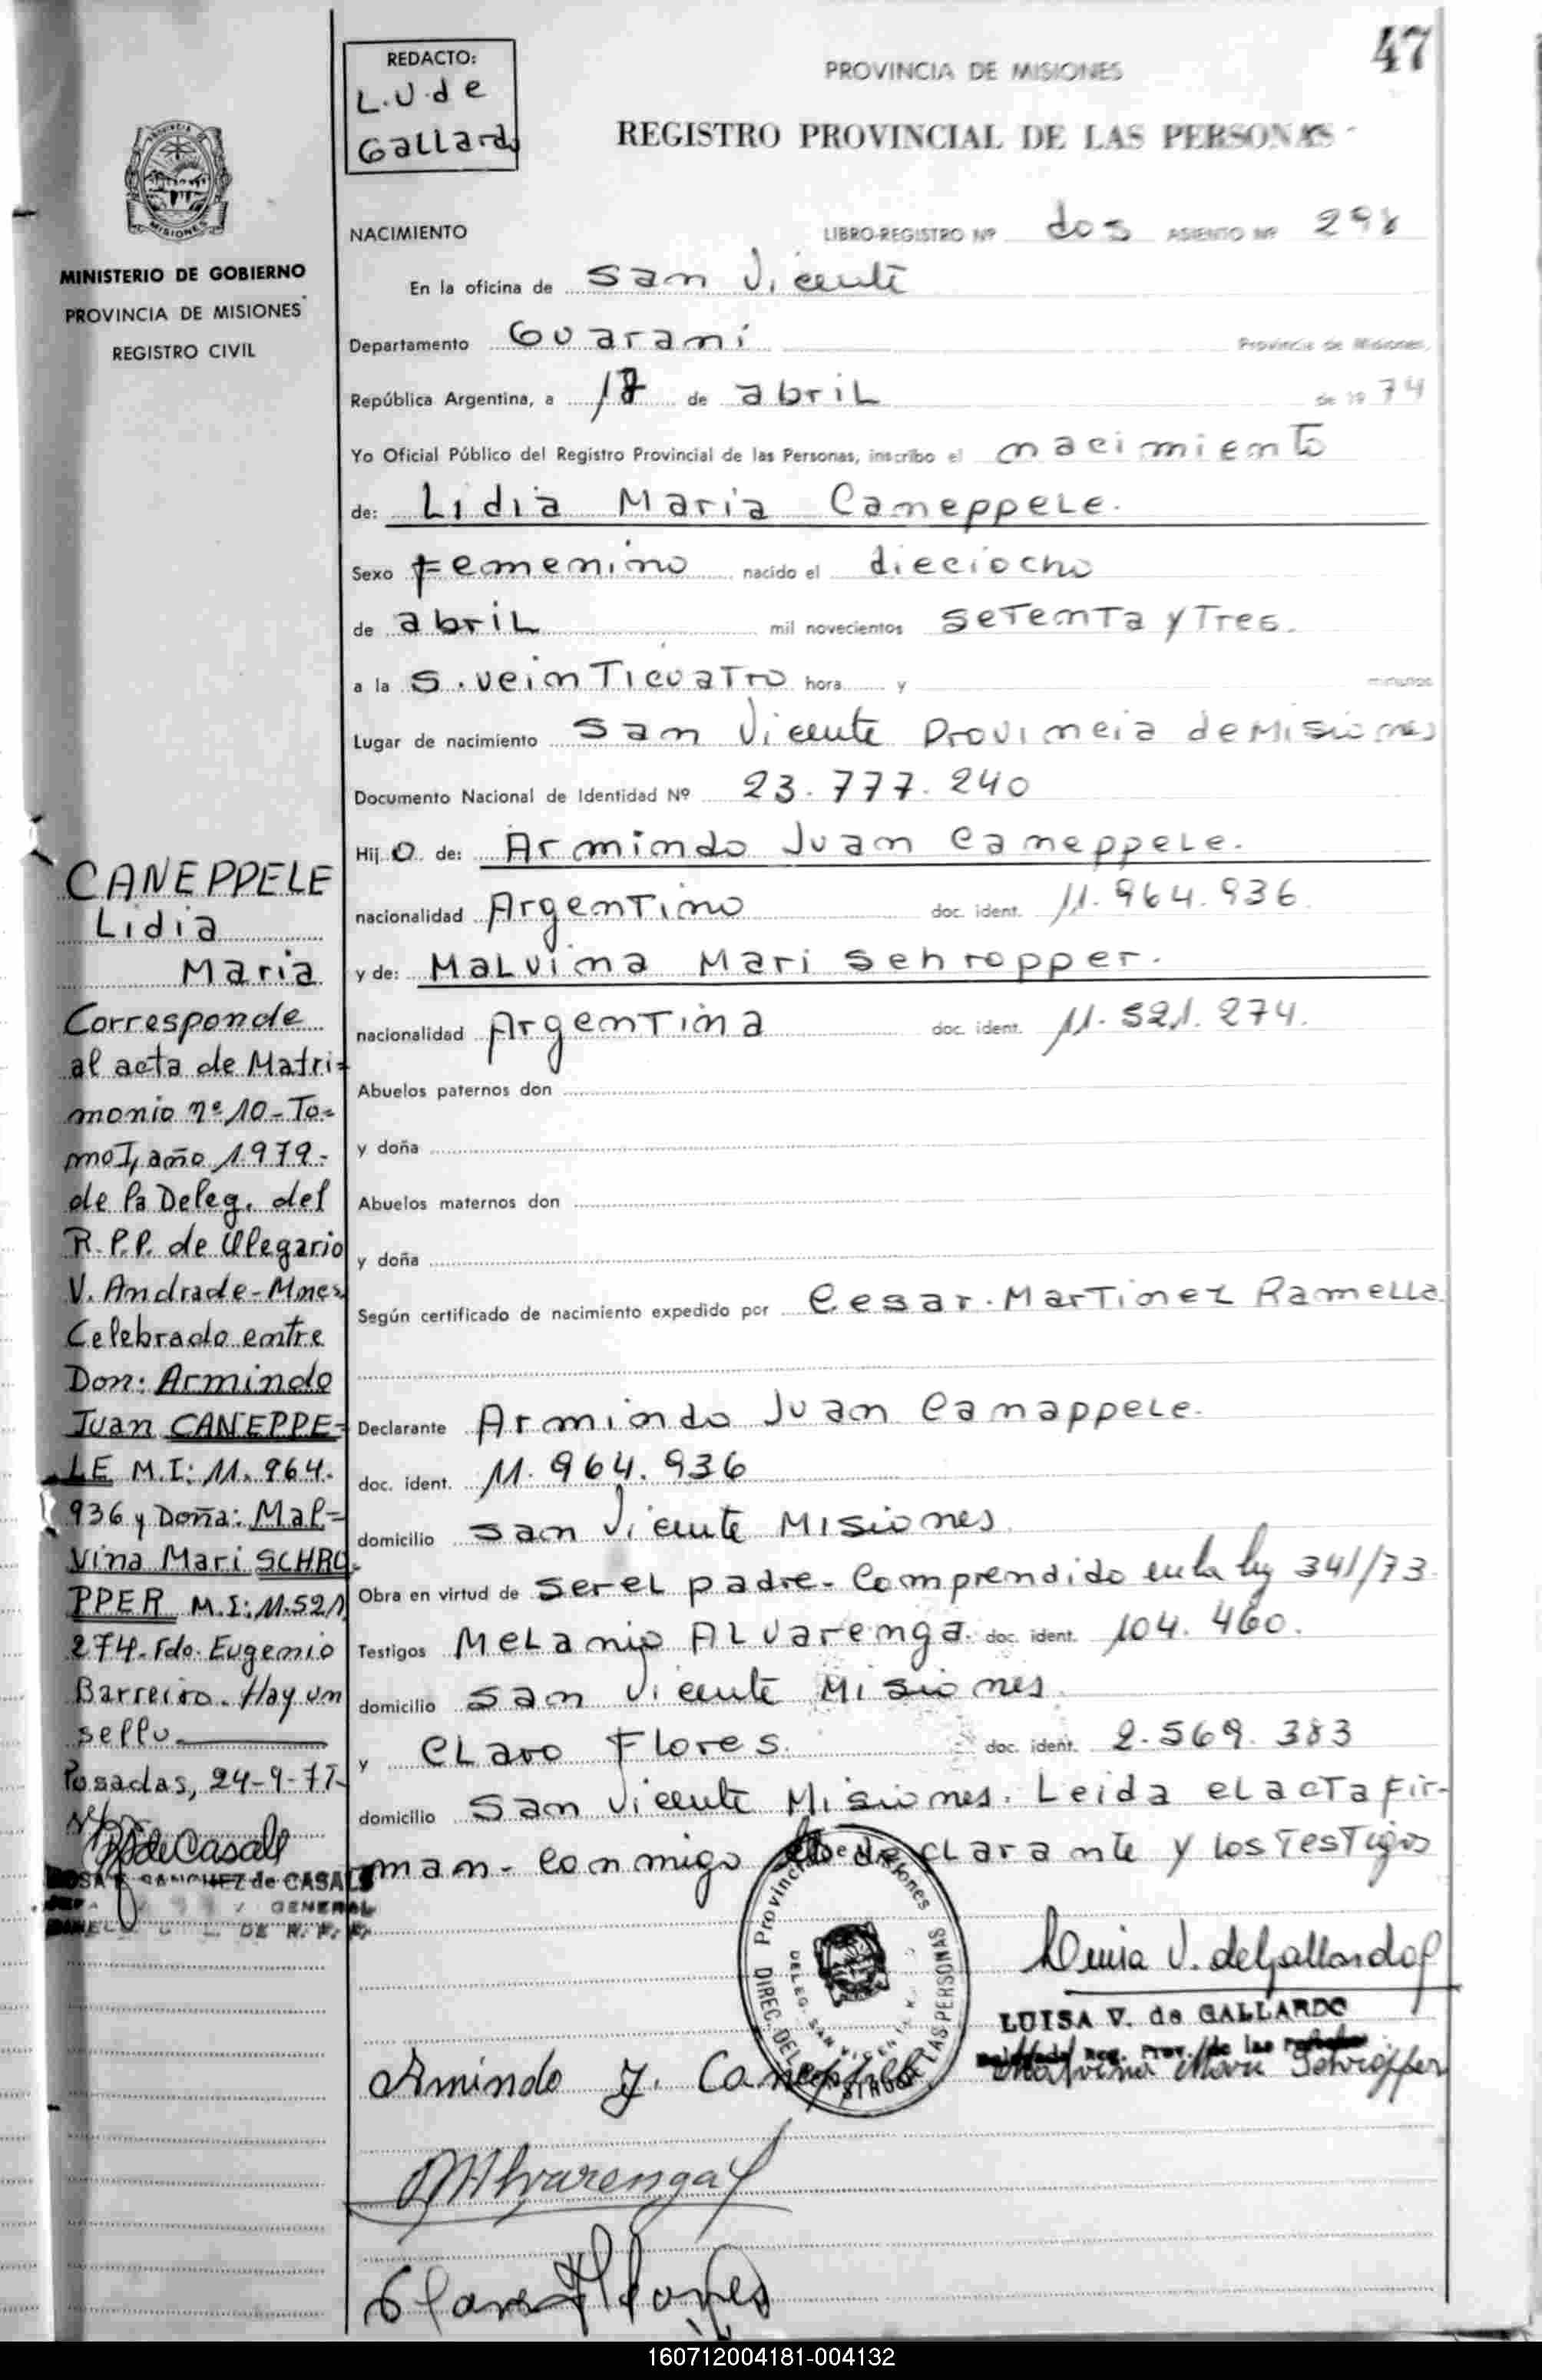 47
REDACTO:
L.U.de
Gallardo
PROVINCIA DE MISIONES
REGISTRO PROVINCIAL DE LAS PERSONAS
MISIONES
MINISTERIO DE GOBIERNO
PROVINCIA DE MISIONES
REGISTRO CIVIL
NACIMIENTO LIBRO-REGISTRO Nº dos ASIENTO Nº 298
En la oficina de San Vicente
Departamento Guaraní Provincia de Misiones,
República Argentina, a 17 de abril de 19 74
Yo Oficial Público del Registro Provincial de las Personas, inscribo el nacimiento
de: Lidia Maria Caneppele.
Sexo Femenino nacido el dieciocho
de abril mil novecientos setenta y Tres.
a la s. veinTicuaTro hora y minutos
Lugar de nacimiento San Vicente Provincia de Misiones
Documento Nacional de Identidad Nº 23.777.240
Hij o de: Armindo Juan Caneppele.
nacionalidad Argentino doc. ident. 11.964.936
y de: Malvina Mari Schropper.
nacionalidad Argentina doc. ident. 11.521.274.
Abuelos paternos don
y doña
Abuelos maternos don
y doña
Según certificado de nacimiento expedido por Cesar. Martinez Ramella.
Declarante Armindo Juan Canappele.
doc. ident. 11.964.936
domicilio San Vicente Misiones
Obra en virtud de ser el padre. Comprendido en la ley 341/73
Testigos Melanio Alvarenga. doc. ident. 104.460.
domicilio San Vicente Misiones.
y Claro Flores. doc. ident. 2.569.383
domicilio San Vicente Misiones. Leida el acta fir-
man conmigo el declarante y los Testigos
CANEPPELE
Lidia
Maria
Corresponde
al acta de Matri=
monio nº 10-To=
mo I, año 1979-
de la Deleg. del
R.P.P. de Olegario
V. Andrade-Mnes.
Celebrado entre
Don: Armindo
Juan CANEPPE=
LE M.I: 11.964.
936 y Doña: Mal=
vina Mari SCHRO
PPER M.I: 11.521
274. Fdo. Eugenio
Barreiro. Hay un
sello.
Posadas, 24-9-77-
de Casals
SANCHEZ de CASALS
GENERAL
DE R. P. P.
Provincia de Misiones
DIREC. DEL REGISTRO DE LAS PERSONAS
DELEG. SAN VICENTE
Luisa V. de Gallardo
LUISA V. de GALLARDO
Delegada Reg. Prov. de las
Armindo J. Caneppele
Malvina Mari Schropper
M Alvarenga
Claro Flores
160712004181-004132